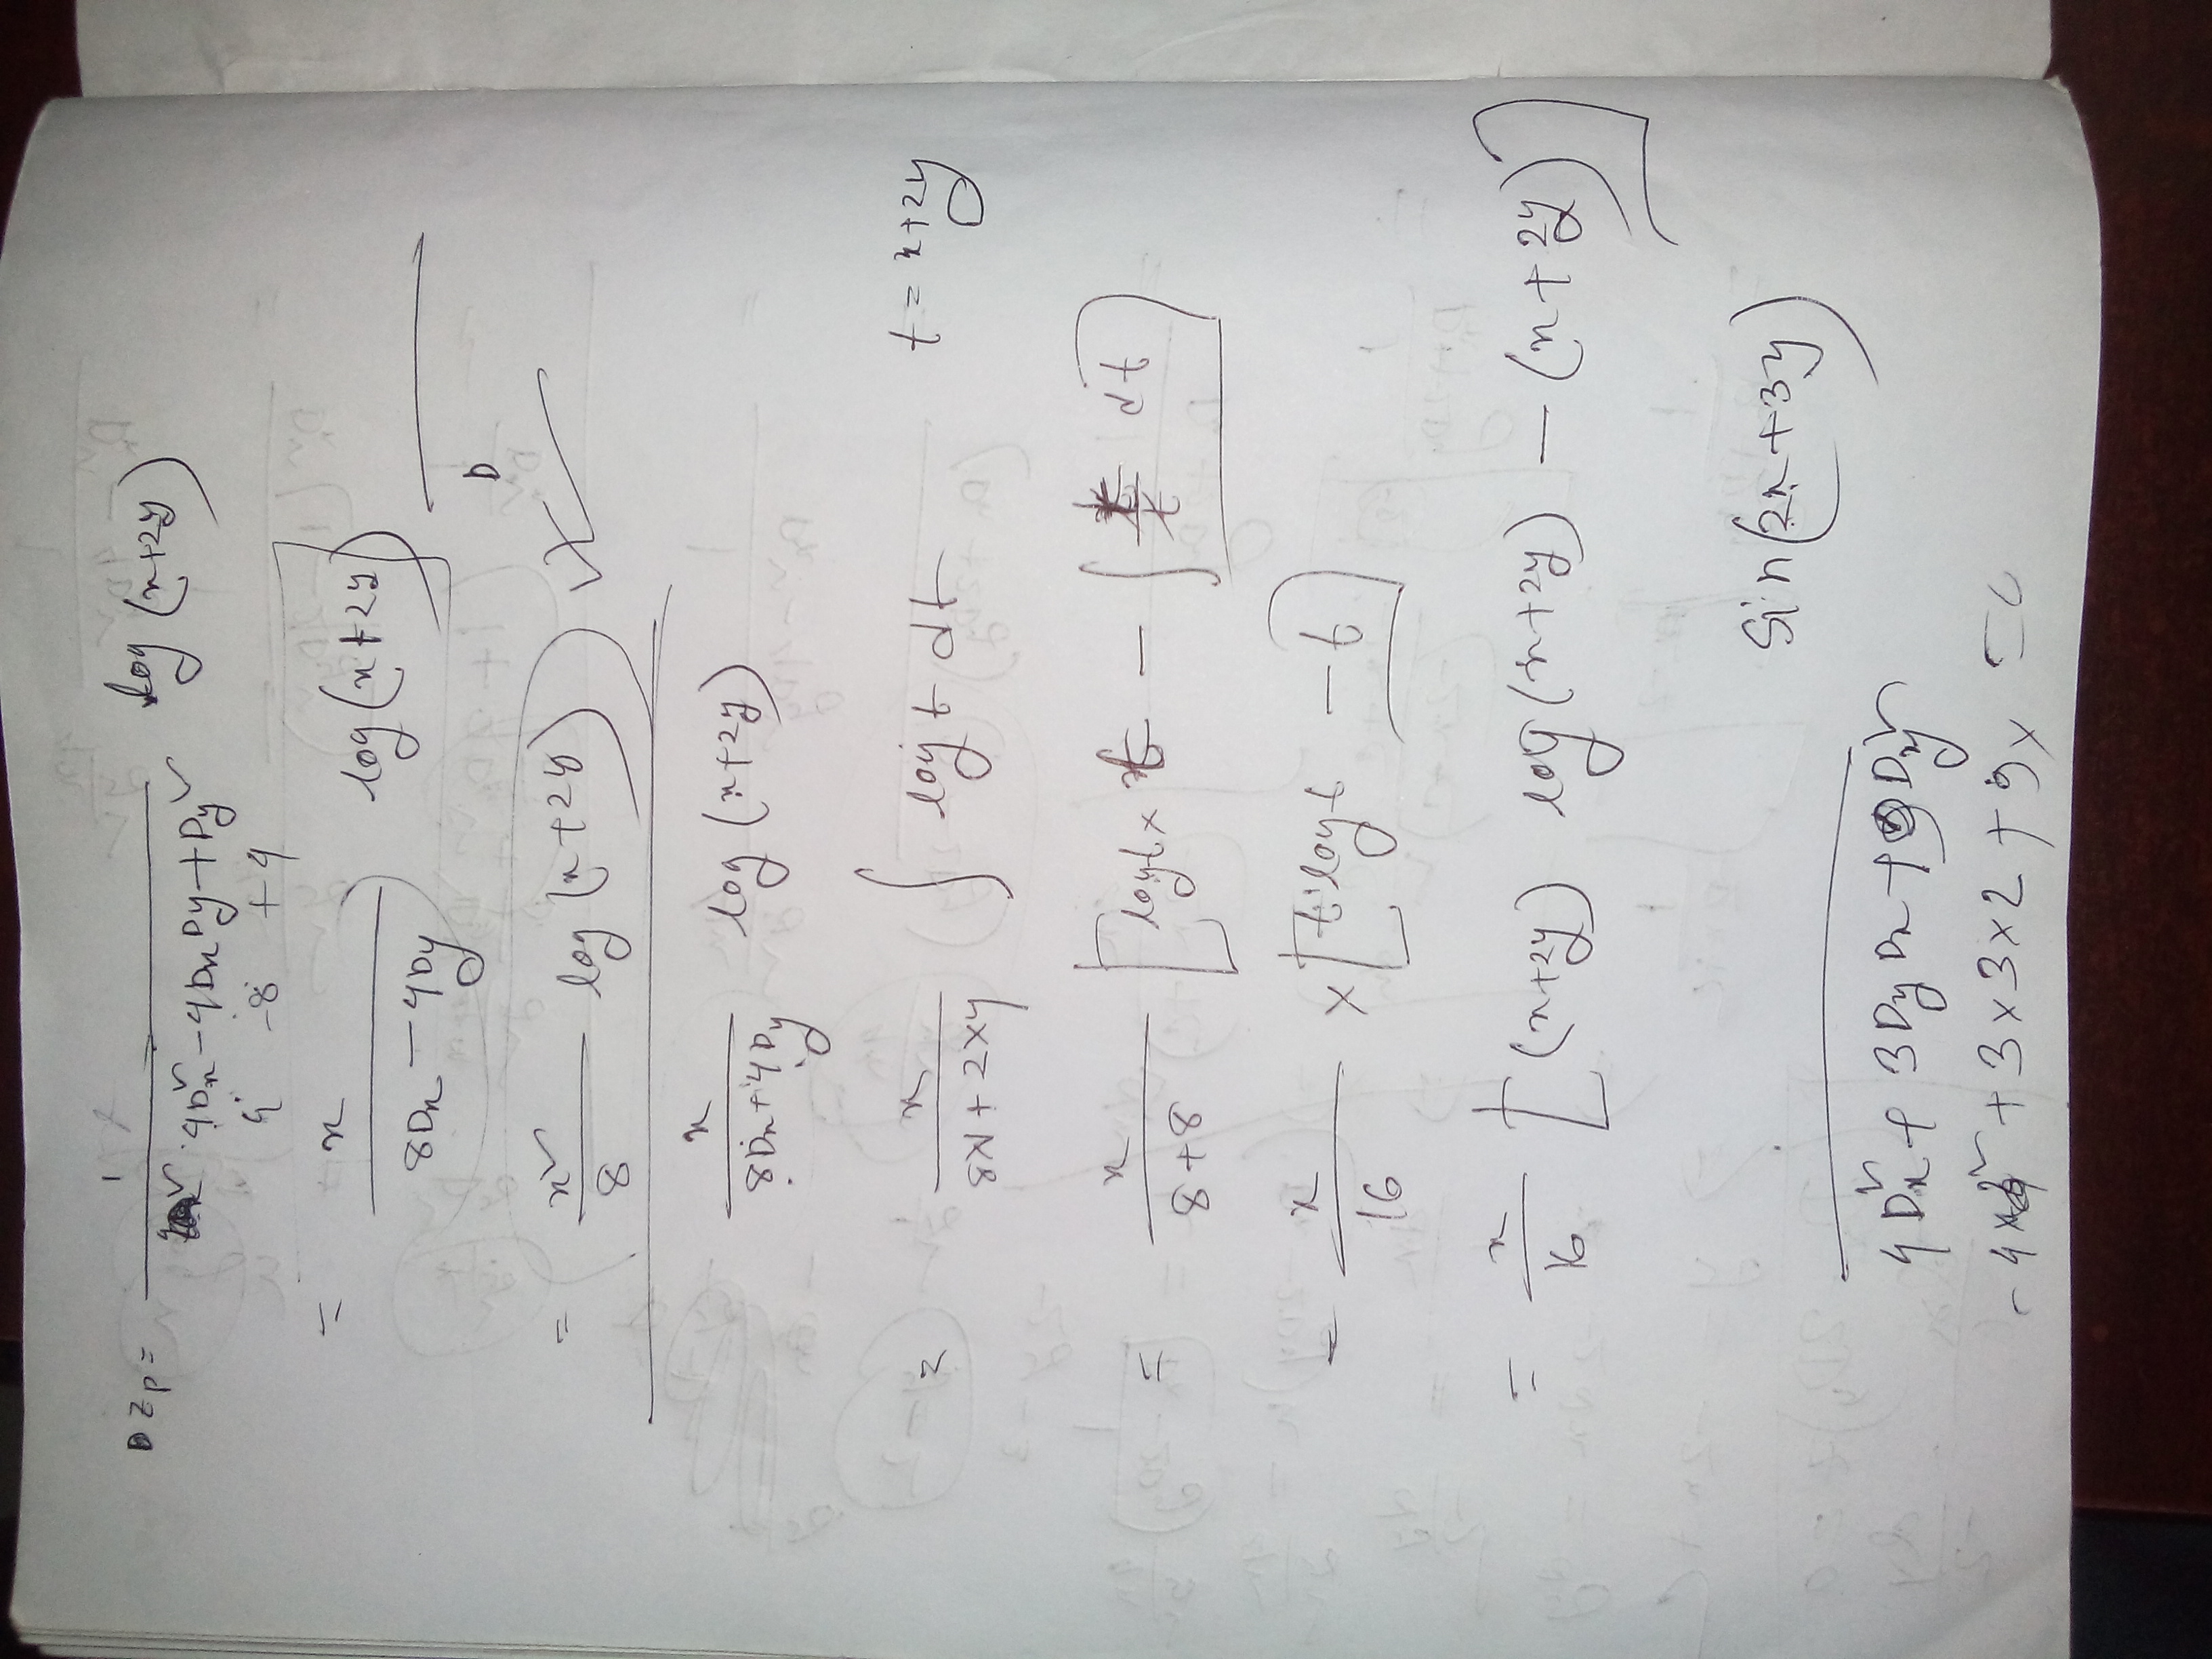 Z_P = 1/(4D_x² - 4D_xD_y + D_y²) log(x+2y)
4 - 8 + 4
= x/(8D_x - 4D_y) log(x+2y)
D
= x²/8 log(x+2y)
x/(8D_x + 4D_y) log(x+2y)
= x/(8×1 + 2×4) ∫ log t dt    t = x+2y
= x/(8+8) [log t × t - ∫ t/t dt]
= x/16 × [t log t - t]
= x/16 [(x+2y) log(x+2y) - (x+2y)]
Sin(2x+3y)
4D_x² + 3D_yD_x + 9D_y²
+ 3×3×2 + 9×